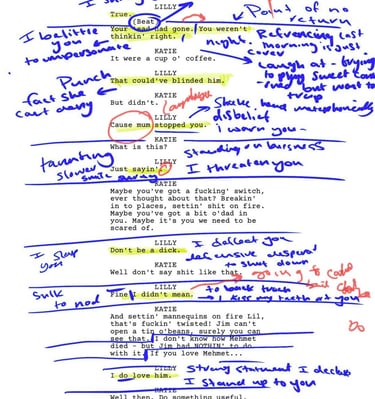 LILLY
True.
(Beat
Point of no
return
I belittle
you
to
Your head had gone. You weren't
thinkin' right.
Refrencing last
night
morning in just
KATIE
It were a cup o' coffee.
Laugh at - trying
LILLY
Punch
That could've blinded him.
- fact she
KATIE
But didn't.
LILLY
Shake head metaphorically
Cause mum stopped you.
disbelief
I warn you -
KATIE
What is this?
taunting
slower
LILLY
Just sayin'.
I threaten you
KATIE
Maybe you've got a fuckin' switch,
ever thought about that? Breakin'
in to places, settin' shit on fire.
Maybe you've got a bit o'dad in
you. Maybe it's you we need to be
scared of.
I slap
you
LILLY
Don't be a dick.
I deflect you
defensive
to shut down
KATIE
Well don't say shit like that.
going to
Sulk
to nod
LILLY
Fine I didn't mean.
to back track
I kiss my teeth at you
KATIE
And settin' mannequins on fire Lil,
that's fuckin' twisted! Jim can't
open a tin o'beans, surely you can
see that. I don't know how Mehmet
died - but Jim had NOTHIN' to do
with it. If you love Mehmet...
LILLY
I do love him.
Strong statement I declare
I stand up to you
KATIE
Well then. Do something useful.